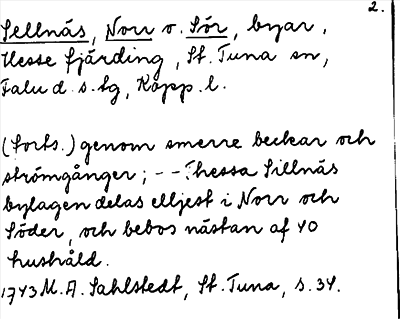 2.
Sellnäs, Norr o. Sör, byar,
Hesse fjärding, St. Tuna sn,
Falu d. s. tg, Kopp. l.
(forts.) genom smerre beckar och
strömgånger; - - Thessa Sillnäs
bylagen delas elljest i Norr och
Söder, och bebos nästan af 40
hushåld.
1743 M. A. Sahlstedt, St. Tuna, s. 34.